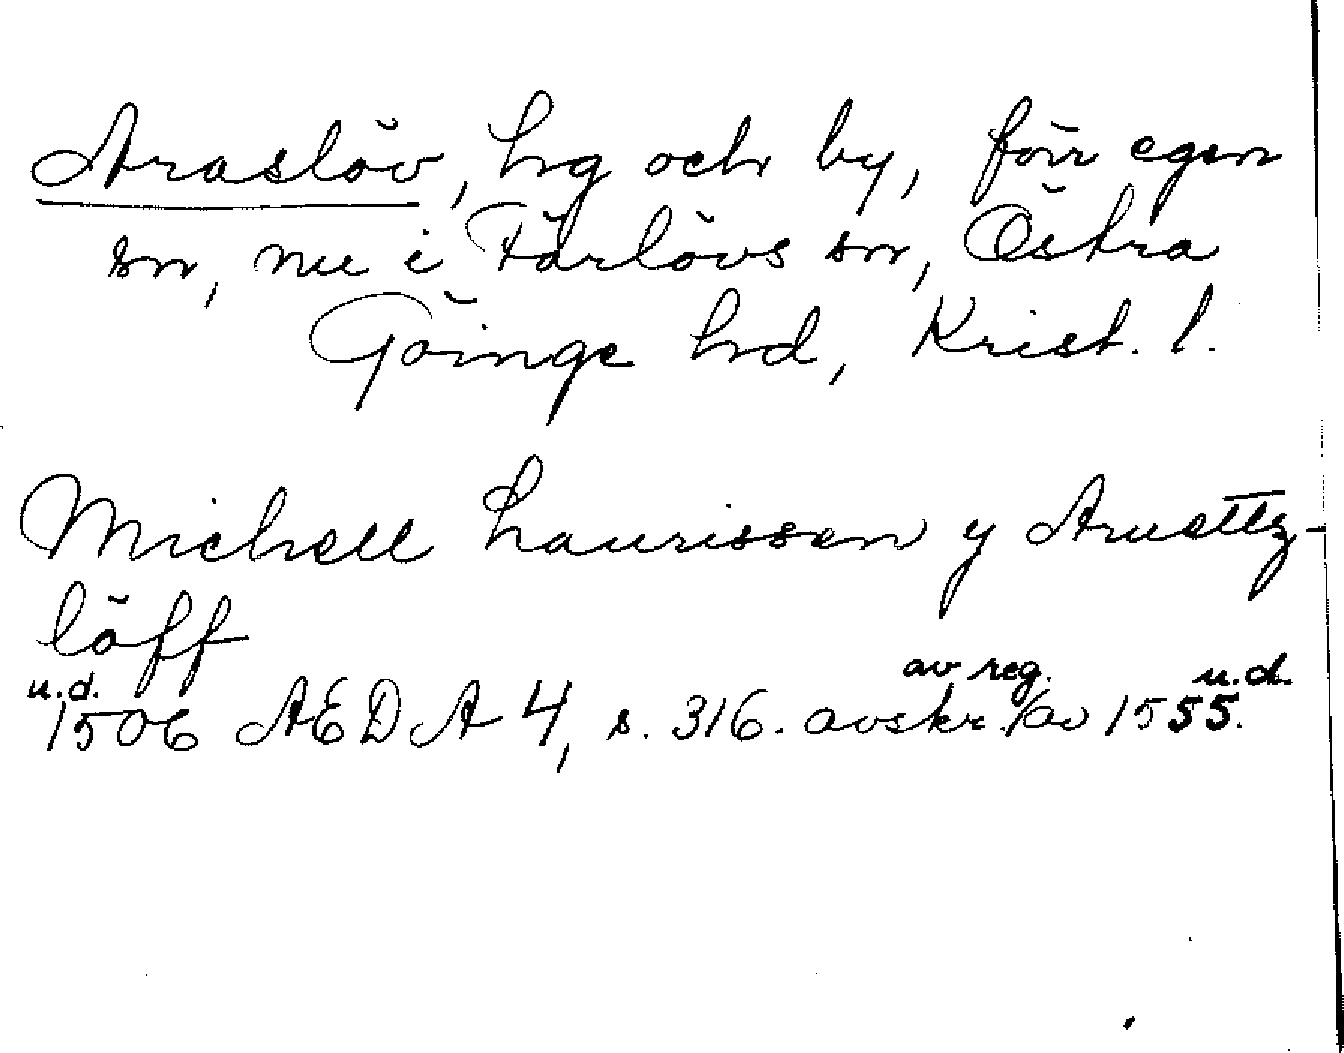 Araslöv, hg och by, förr egen
sn, nu i Färlövs sn, Östra
Göinge hd, Krist. l.
Michell Laurissen y Arusttz-
löff
u.d. av reg. u.d.
1506 AEDA 4, s. 316. avskr. av 1555.